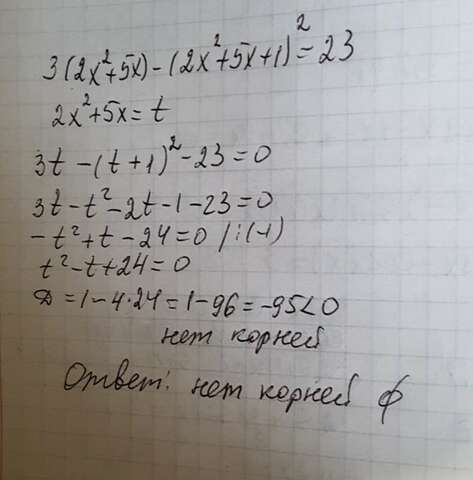 3(2x²+5x)-(2x²+5x+1)²=23
2x²+5x=t
3t-(t+1)²-23=0
3t-t²-2t-1-23=0
-t²+t-24=0 /:(-1)
t²-t+24=0
D=1-4·24=1-96=-95<0
нет корней
Ответ: нет корней ф